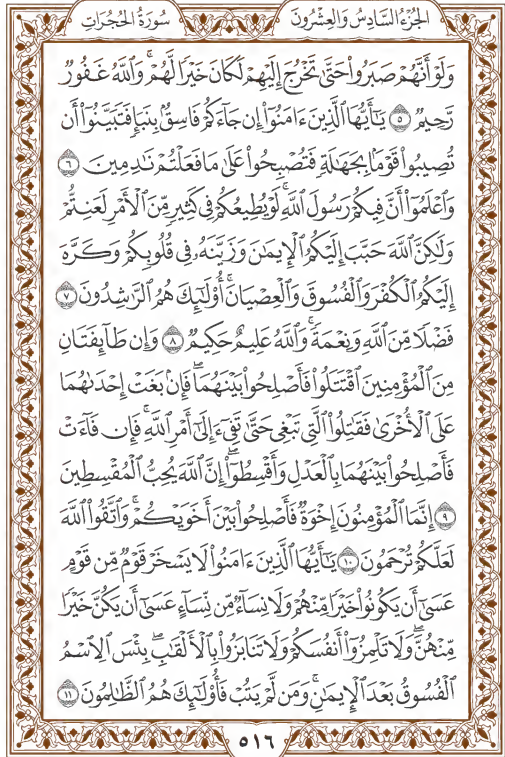 الجُزْءُ السَّادِسُ وَالعِشْرُونَ سُورَةُ الحُجُرَاتِ
وَلَوْ أَنَّهُمْ صَبَرُوا۟ حَتَّىٰ تَخْرُجَ إِلَيْهِمْ لَكَانَ خَيْرًا لَّهُمْ ۚ وَٱللَّهُ غَفُورٌ
رَّحِيمٌ ٥ يَـٰٓأَيُّهَا ٱلَّذِينَ ءَامَنُوٓا۟ إِن جَآءَكُمْ فَاسِقٌۢ بِنَبَإٍ فَتَبَيَّنُوٓا۟ أَن
تُصِيبُوا۟ قَوْمًۢا بِجَهَـٰلَةٍ فَتُصْبِحُوا۟ عَلَىٰ مَا فَعَلْتُمْ نَـٰدِمِينَ ٦
وَٱعْلَمُوٓا۟ أَنَّ فِيكُمْ رَسُولَ ٱللَّهِ ۚ لَوْ يُطِيعُكُمْ فِى كَثِيرٍ مِّنَ ٱلْأَمْرِ لَعَنِتُّمْ
وَلَـٰكِنَّ ٱللَّهَ حَبَّبَ إِلَيْكُمُ ٱلْإِيمَـٰنَ وَزَيَّنَهُۥ فِى قُلُوبِكُمْ وَكَرَّهَ
إِلَيْكُمُ ٱلْكُفْرَ وَٱلْفُسُوقَ وَٱلْعِصْيَانَ ۚ أُو۟لَـٰٓئِكَ هُمُ ٱلرَّٰشِدُونَ ٧
فَضْلًا مِّنَ ٱللَّهِ وَنِعْمَةً ۚ وَٱللَّهُ عَلِيمٌ حَكِيمٌ ٨ وَإِن طَآئِفَتَانِ
مِنَ ٱلْمُؤْمِنِينَ ٱقْتَتَلُوا۟ فَأَصْلِحُوا۟ بَيْنَهُمَا ۖ فَإِنۢ بَغَتْ إِحْدَىٰهُمَا
عَلَى ٱلْأُخْرَىٰ فَقَـٰتِلُوا۟ ٱلَّتِى تَبْغِى حَتَّىٰ تَفِىٓءَ إِلَىٰٓ أَمْرِ ٱللَّهِ ۚ فَإِن فَآءَتْ
فَأَصْلِحُوا۟ بَيْنَهُمَا بِٱلْعَدْلِ وَأَقْسِطُوٓا۟ ۖ إِنَّ ٱللَّهَ يُحِبُّ ٱلْمُقْسِطِينَ
٩ إِنَّمَا ٱلْمُؤْمِنُونَ إِخْوَةٌ فَأَصْلِحُوا۟ بَيْنَ أَخَوَيْكُمْ ۚ وَٱتَّقُوا۟ ٱللَّهَ
لَعَلَّكُمْ تُرْحَمُونَ ١٠ يَـٰٓأَيُّهَا ٱلَّذِينَ ءَامَنُوا۟ لَا يَسْخَرْ قَوْمٌ مِّن قَوْمٍ
عَسَىٰٓ أَن يَكُونُوا۟ خَيْرًا مِّنْهُمْ وَلَا نِسَآءٌ مِّن نِّسَآءٍ عَسَىٰٓ أَن يَكُنَّ خَيْرًا
مِّنْهُنَّ ۖ وَلَا تَلْمِزُوٓا۟ أَنفُسَكُمْ وَلَا تَنَابَزُوا۟ بِٱلْأَلْقَـٰبِ ۖ بِئْسَ ٱلِٱسْمُ
ٱلْفُسُوقُ بَعْدَ ٱلْإِيمَـٰنِ ۚ وَمَن لَّمْ يَتُبْ فَأُو۟لَـٰٓئِكَ هُمُ ٱلظَّـٰلِمُونَ ١١
٥١٦